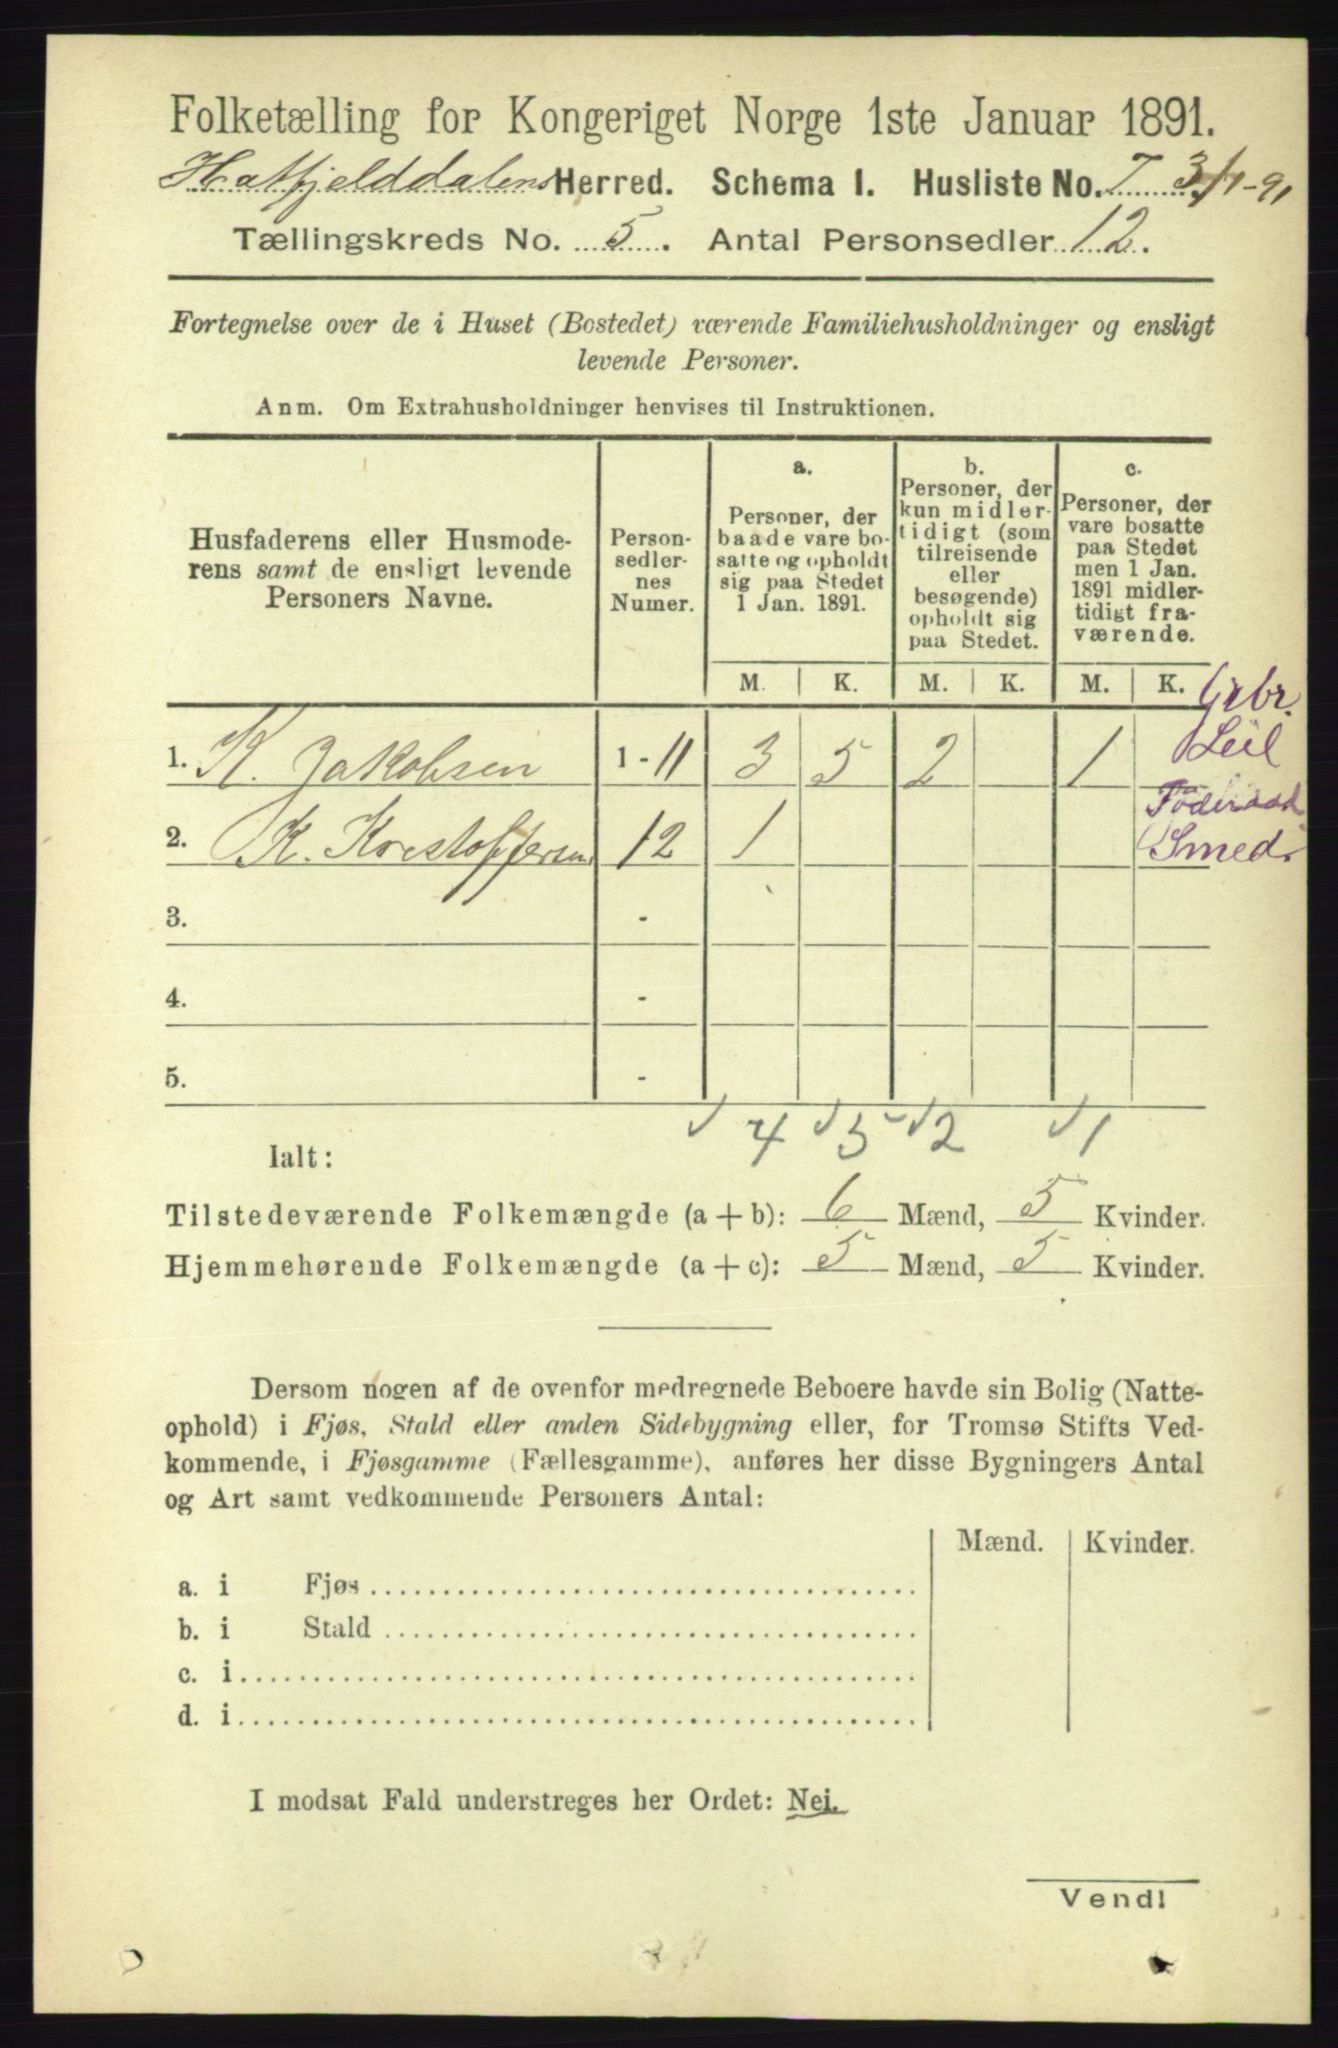 Folketælling for Kongeriget Norge 1ste Januar 1891.
Hatfjelddalens Herred. Schema I. Husliste No. 7 3/1-91
Tællingskreds No. 5. Antal Personsedler 12.
Fortegnelse over de i Huset (Bostedet) værende Familiehusholdninger og ensligt
levende Personer.
Anm. Om Extrahusholdninger henvises til Instruktionen.
Husfaderens eller Husmode-
rens samt de ensligt levende
Personers Navne.
Person-
sedler-
nes
Numer.
a.
Personer, der
baade vare bo-
satte og opholdt
sig paa Stedet
1 Jan. 1891.
b.
Personer, der
kun midler-
tidigt (som
tilreisende
eller
besøgende)
opholdt sig
paa Stedet.
c.
Personer, der
vare bosatte
paa Stedet
men 1 Jan.
1891 midler-
tidigt fra-
værende.
M. K. M. K. M. K.
Grbr.
1. K. Jakobsen 1-11 3 5 2 1 Leil
Föderaad
2. K. Krestoffersen 12 1 Smed.
3. -
4. -
5. -
4 5 2 1
Ialt:
Tilstedeværende Folkemængde (a+b): 6 Mænd, 5 Kvinder.
Hjemmehørende Folkemængde (a+c): 5 Mænd, 5 Kvinder.
Dersom nogen af de ovenfor medregnede Beboere havde sin Bolig (Natte-
ophold) i Fjøs, Stald eller anden Sidebygning eller, for Tromsø Stifts Ved-
kommende, i Fjøsgamme (Fællesgamme), anføres her disse Bygningers Antal
og Art samt vedkommende Personers Antal:
Mænd. Kvinder.
a. i Fjøs
b. i Stald
c. i
d. i
I modsat Fald understreges her Ordet: Nei.
Vend!